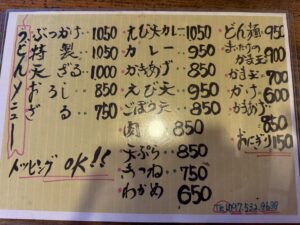 うどんメニュー
ぶっかけ・・1050
特製・・1050
天ざる・・1,000
おろし・・850
ざる・・750
トッピングOK!!
えび天カレー・1050
カレー・・950
かきあげ・・850
えび天・・950
ごぼう天・・850
肉・・850
天ぷら・・850
きつね・・750
わかめ・650
どん麺・・950
釜玉・・900
かま玉・・700
かけ・・600
かきあげ
850
おにぎり150